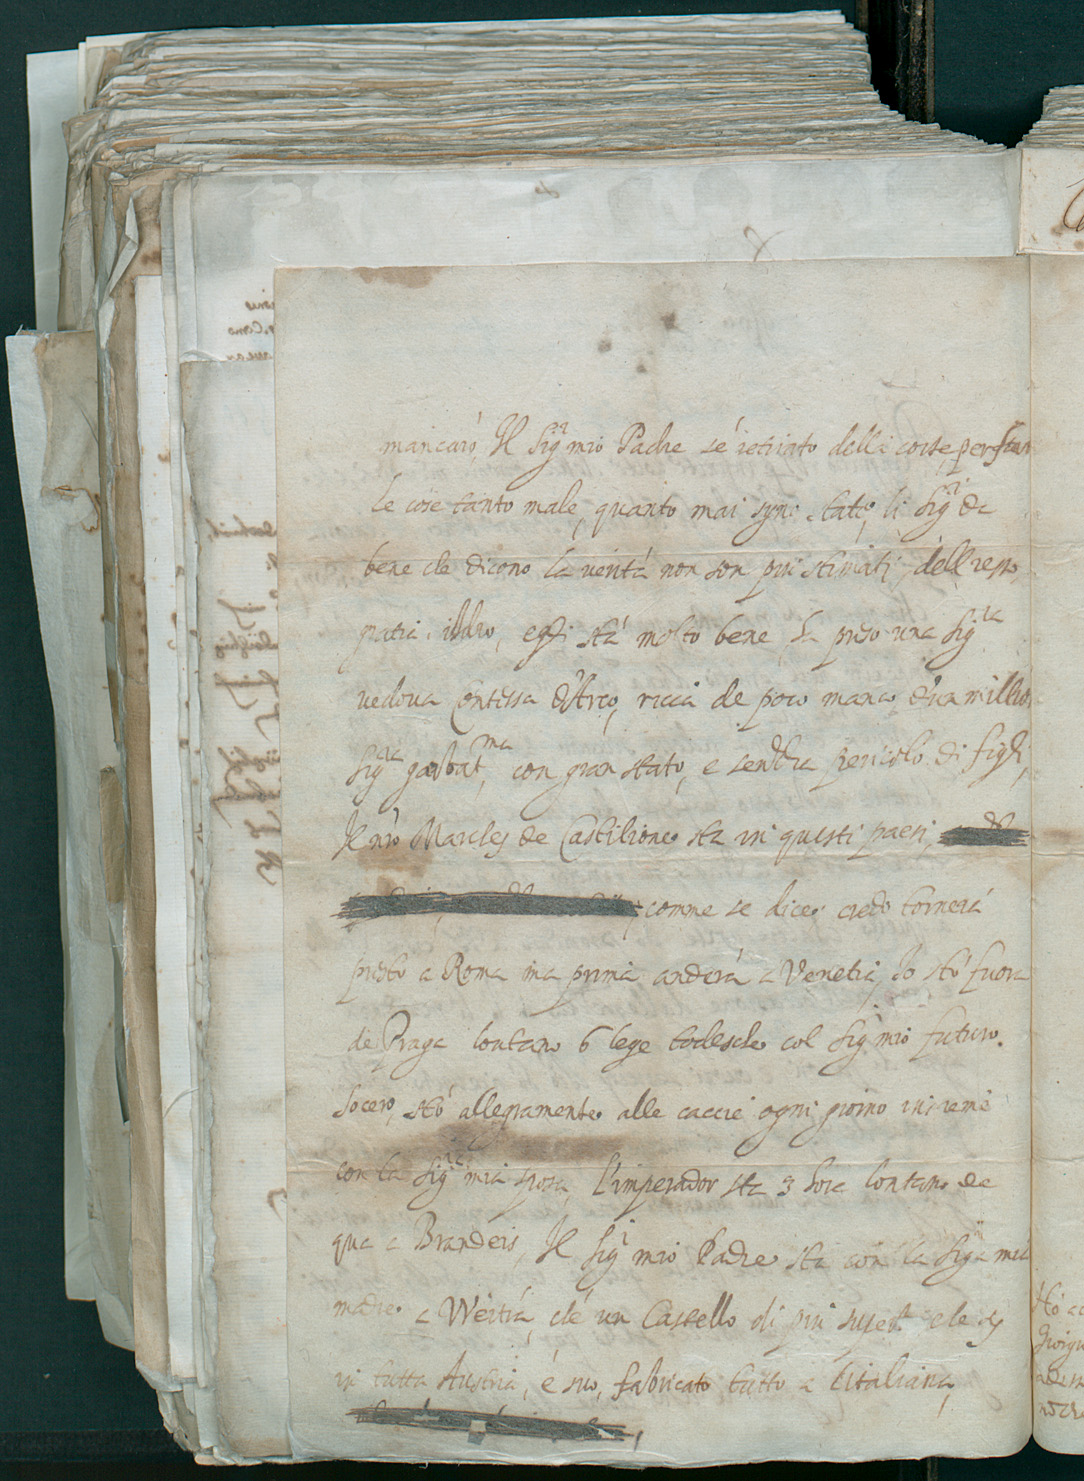 mancarò, Il Sigr mio Padre sé retirato della corte, per star
le cose tanto male, quanto mai sync stato, li Sigri da
bene che dicono la verità non son piu stimati, dell resto
gratia iddio, egli stà molto bene, ha preso una Sigra
vedova Contessa d'Arco, ricca de poco manco d'un millio
Sigra garbatma, con gran stato, e sendza pericolo di figli,
Il nro Marches de Castilione sta in questi paesi,
comme se dice, credo tornerà
presto a Roma ma prima anderà a Venetia, Io stò fuora
de Praga lontano 6 lege todesche col Sigr mio futuro
socero, stò allegramente alle caccie ogni giorno insieme
con la Sigra mia sposa, L'imperador sta 3 hore lontano de
qua a Brandeis, Il Sigr mio Padre sta con la Sigra mia
madre a Weitra, ch'é un Castello di piu che sy
in tutta Austria, é suo, fabricato tutto a l'italiana,